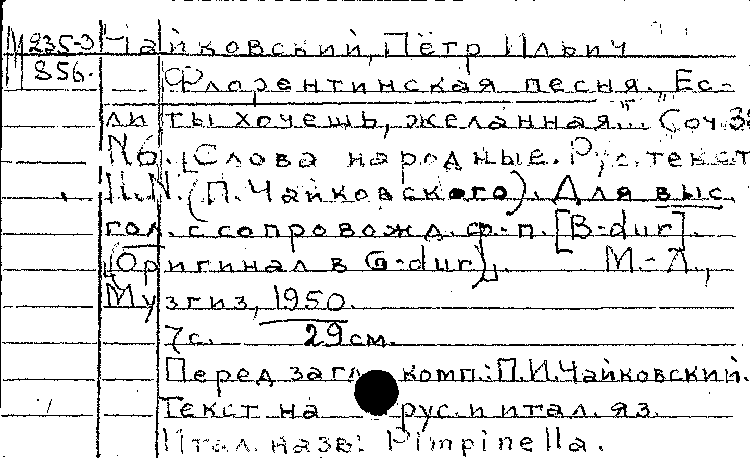 М 235-9 Чайковский, Пётр Ильич
856. Флорентинская песня. „Ес-
ли ты хочешь, желанная...“ Соч. 38
№6. [Слова народные. Рус. текст
Н.N. (П. Чайковского). Для выс.
гол. с сопровожд. ф-п. [B-dur].
(Оригинал в G-dur)]. М.-Л.,
Музгиз, 1950.
7с. 29см.
Перед загл. комп.: П.И.Чайковский.
Текст на рус. и итал. яз.
Итал. назв: Pimpinella.